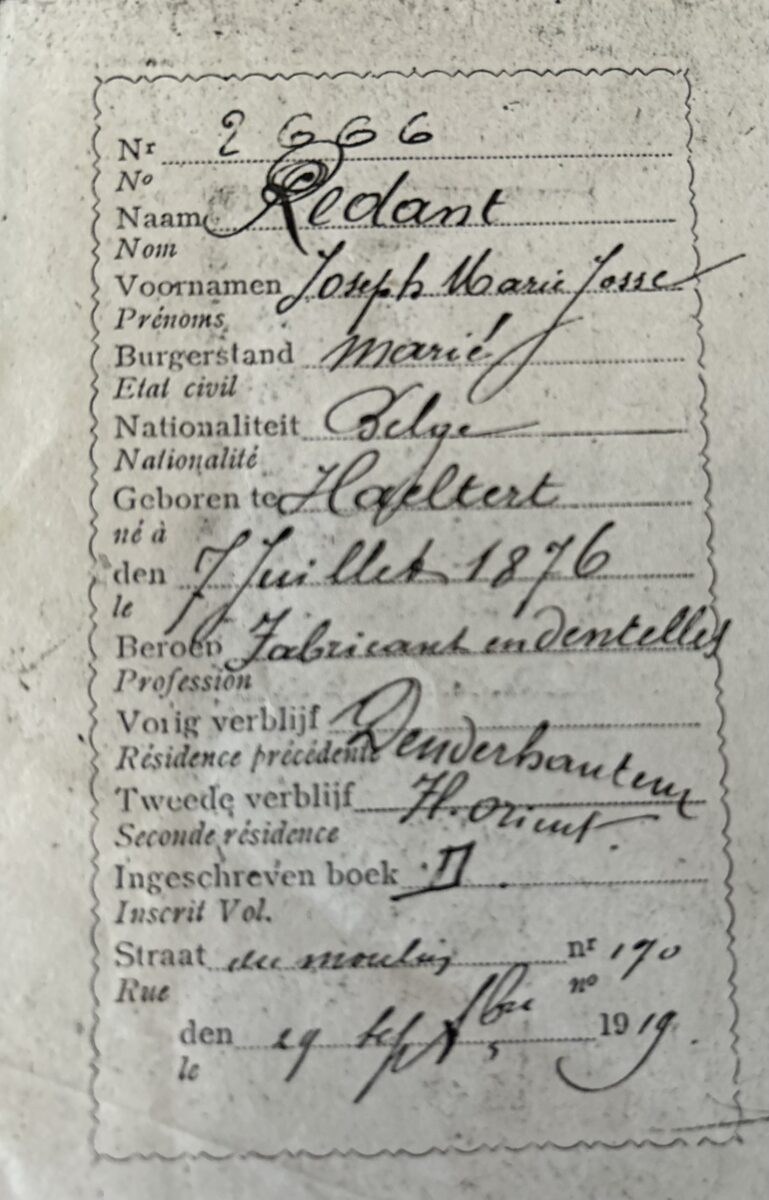 Nr 2666
No
Naam Redant
Nom
Voornamen Joseph Marie Josse
Prénoms
Burgerstand marié
Etat civil
Nationaliteit Belge
Nationalité
Geboren te Haeltert
né à
den 7 Juillet 1876
le
Beroep Fabricant en dentelles
Profession
Vorig verblijf Denderhautem
Résidence précédente
Tweede verblijf H. orient.
Seconde résidence
Ingeschreven boek II.
Inscrit Vol.
Straat du moulin nr 170
Rue no
den 29 septbre 1919.
le